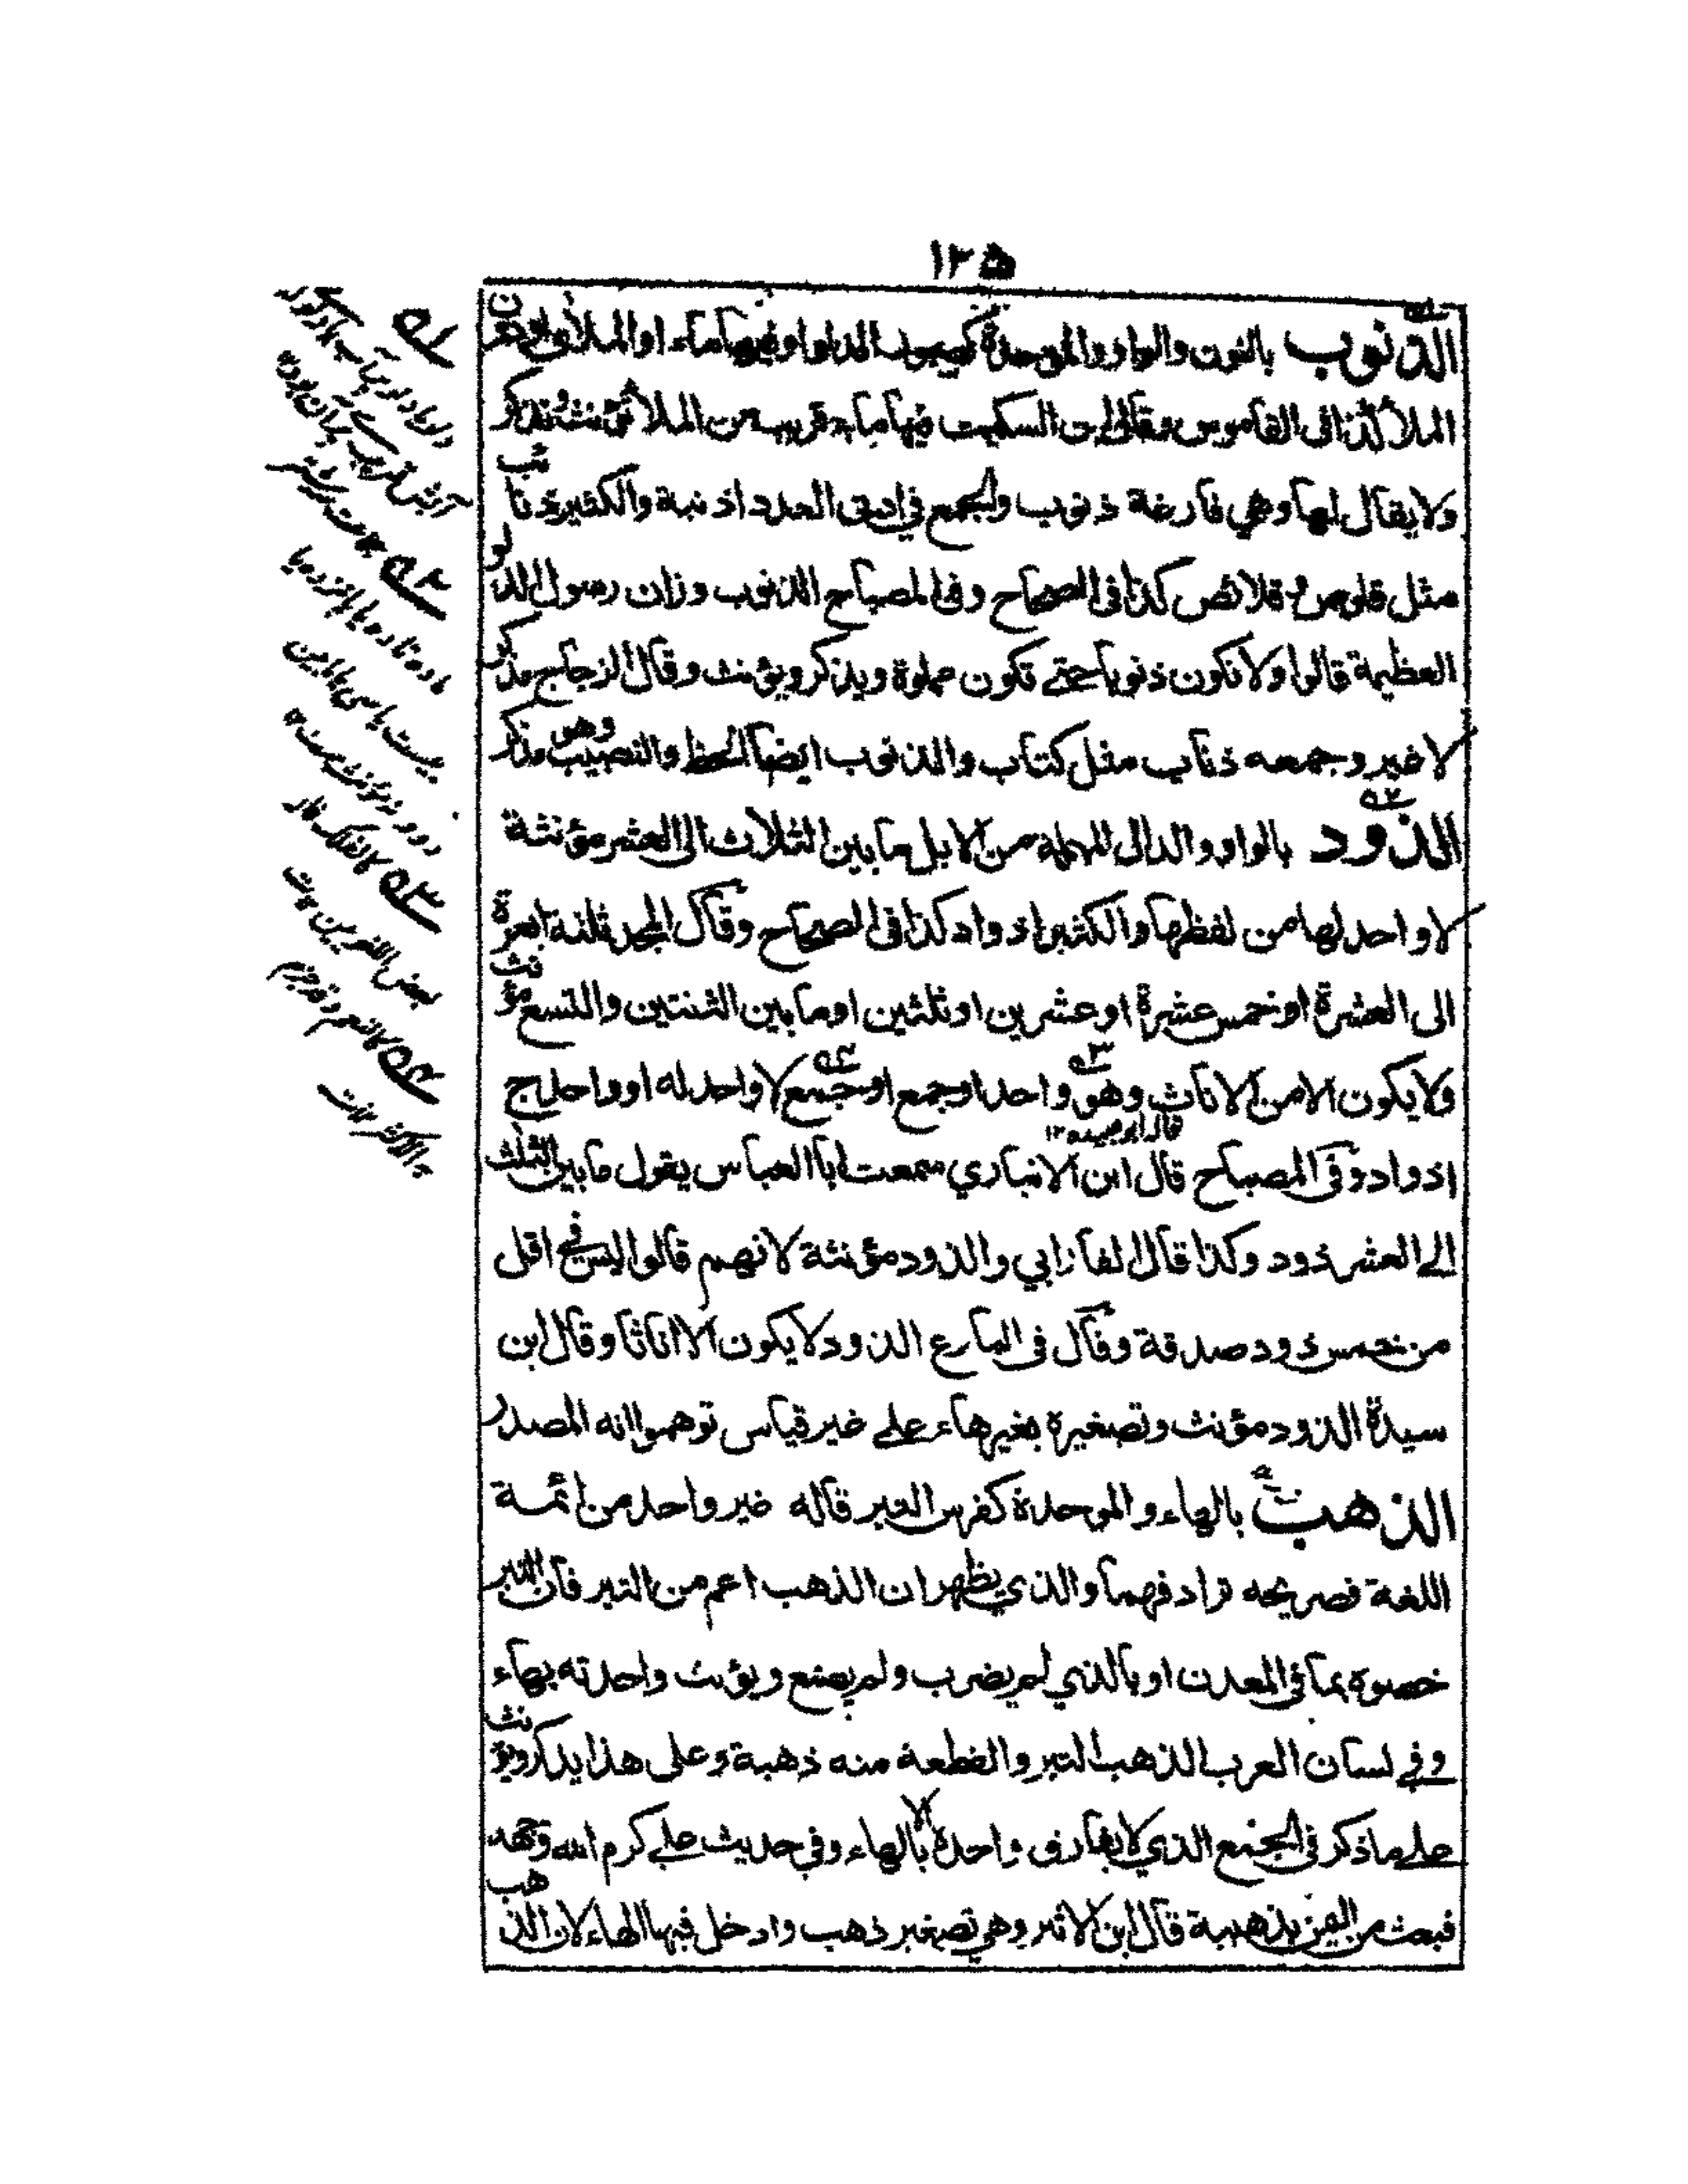 ١٣٥
الذنوب بالنون والواو والموحدة كصبور الدلو او فيها ماء او الملأى او دون
الملأ كذا فى القاموس وقال ابن السكيت فيها ماء قريب من الملأ تؤنث وتذكر
ولا يقال لها وهي فارغة ذنوب والجمع في ادنى العدد اذنبة والكثير ذنائب
مثل قلوص وقلائص كذا فى الصحاح وفى المصباح الذنوب وزان رسول الدلو
العظيمة قالوا ولا تكون ذنوبا حتے تكون مملوة ويذكر ويؤنث وقال الزجاج مذكر
لا غير وجمعه ذناب مثل كتاب والذنوب ايضا الحظ والنصيب وهو مذكر
الذود بالواو والدال المهملة من الابل ما بين الثلاث الى العشر مؤنثة
لا واحد لها من لفظها والكثير اذواد كذا فى الصحاح وقال المجد ثلثة ابعرة
الى العشرة او خمس عشرة او عشرين او ثلثين او ما بين الثنتين والتسع مؤنث
ولا يكون الا من الاناث وهو واحد او جمع او جمع لا واحد له او واحد ج
قاله ابو عبيده ١٢
اذواد وفى المصباح قال ابن الانباري سمعت ابا العباس يقول ما بين الثلث
الے العشر ذود وكذا قال الفارابي والذود مؤنثة لانهم قالوا ليس في اقل
من خمس ذود صدقة وقال فى البارع الذود لا يكون الا اناثا وقال ابن
سيدة الذود مؤنث وتصغيره بغير هاء علے غير قياس توهموا انه المصدر
الذهب بالهاء والموحدة كفرس التبر قاله غير واحد من ائمة
اللغة فصريحه ترادفهما والذي يظهر ان الذهب اعم من التبر فان التبر
خصوه بما فى المعدن او بالذي لم يضرب ولم يصنع ويؤنث واحدته بهاء
وفے لسان العرب الذهب التبر والقطعة منه ذهبة وعلى هذا يذكر ويؤنث
علے ما ذكر فى الجمع الذي لا يفارق واحده الا بالهاء وفي حديث علے كرم الله وجهه
فبعث من اليمن بذهيبة قال ابن الاثير وهي تصغير ذهب وادخل فيها الهاء لان الذهب